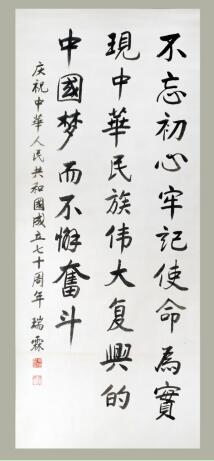 不忘初心牢記使命為實
現中華民族伟大复興的
中國梦而不懈奮斗
庆祝中華人民共和國成立七十周年 瑞霖